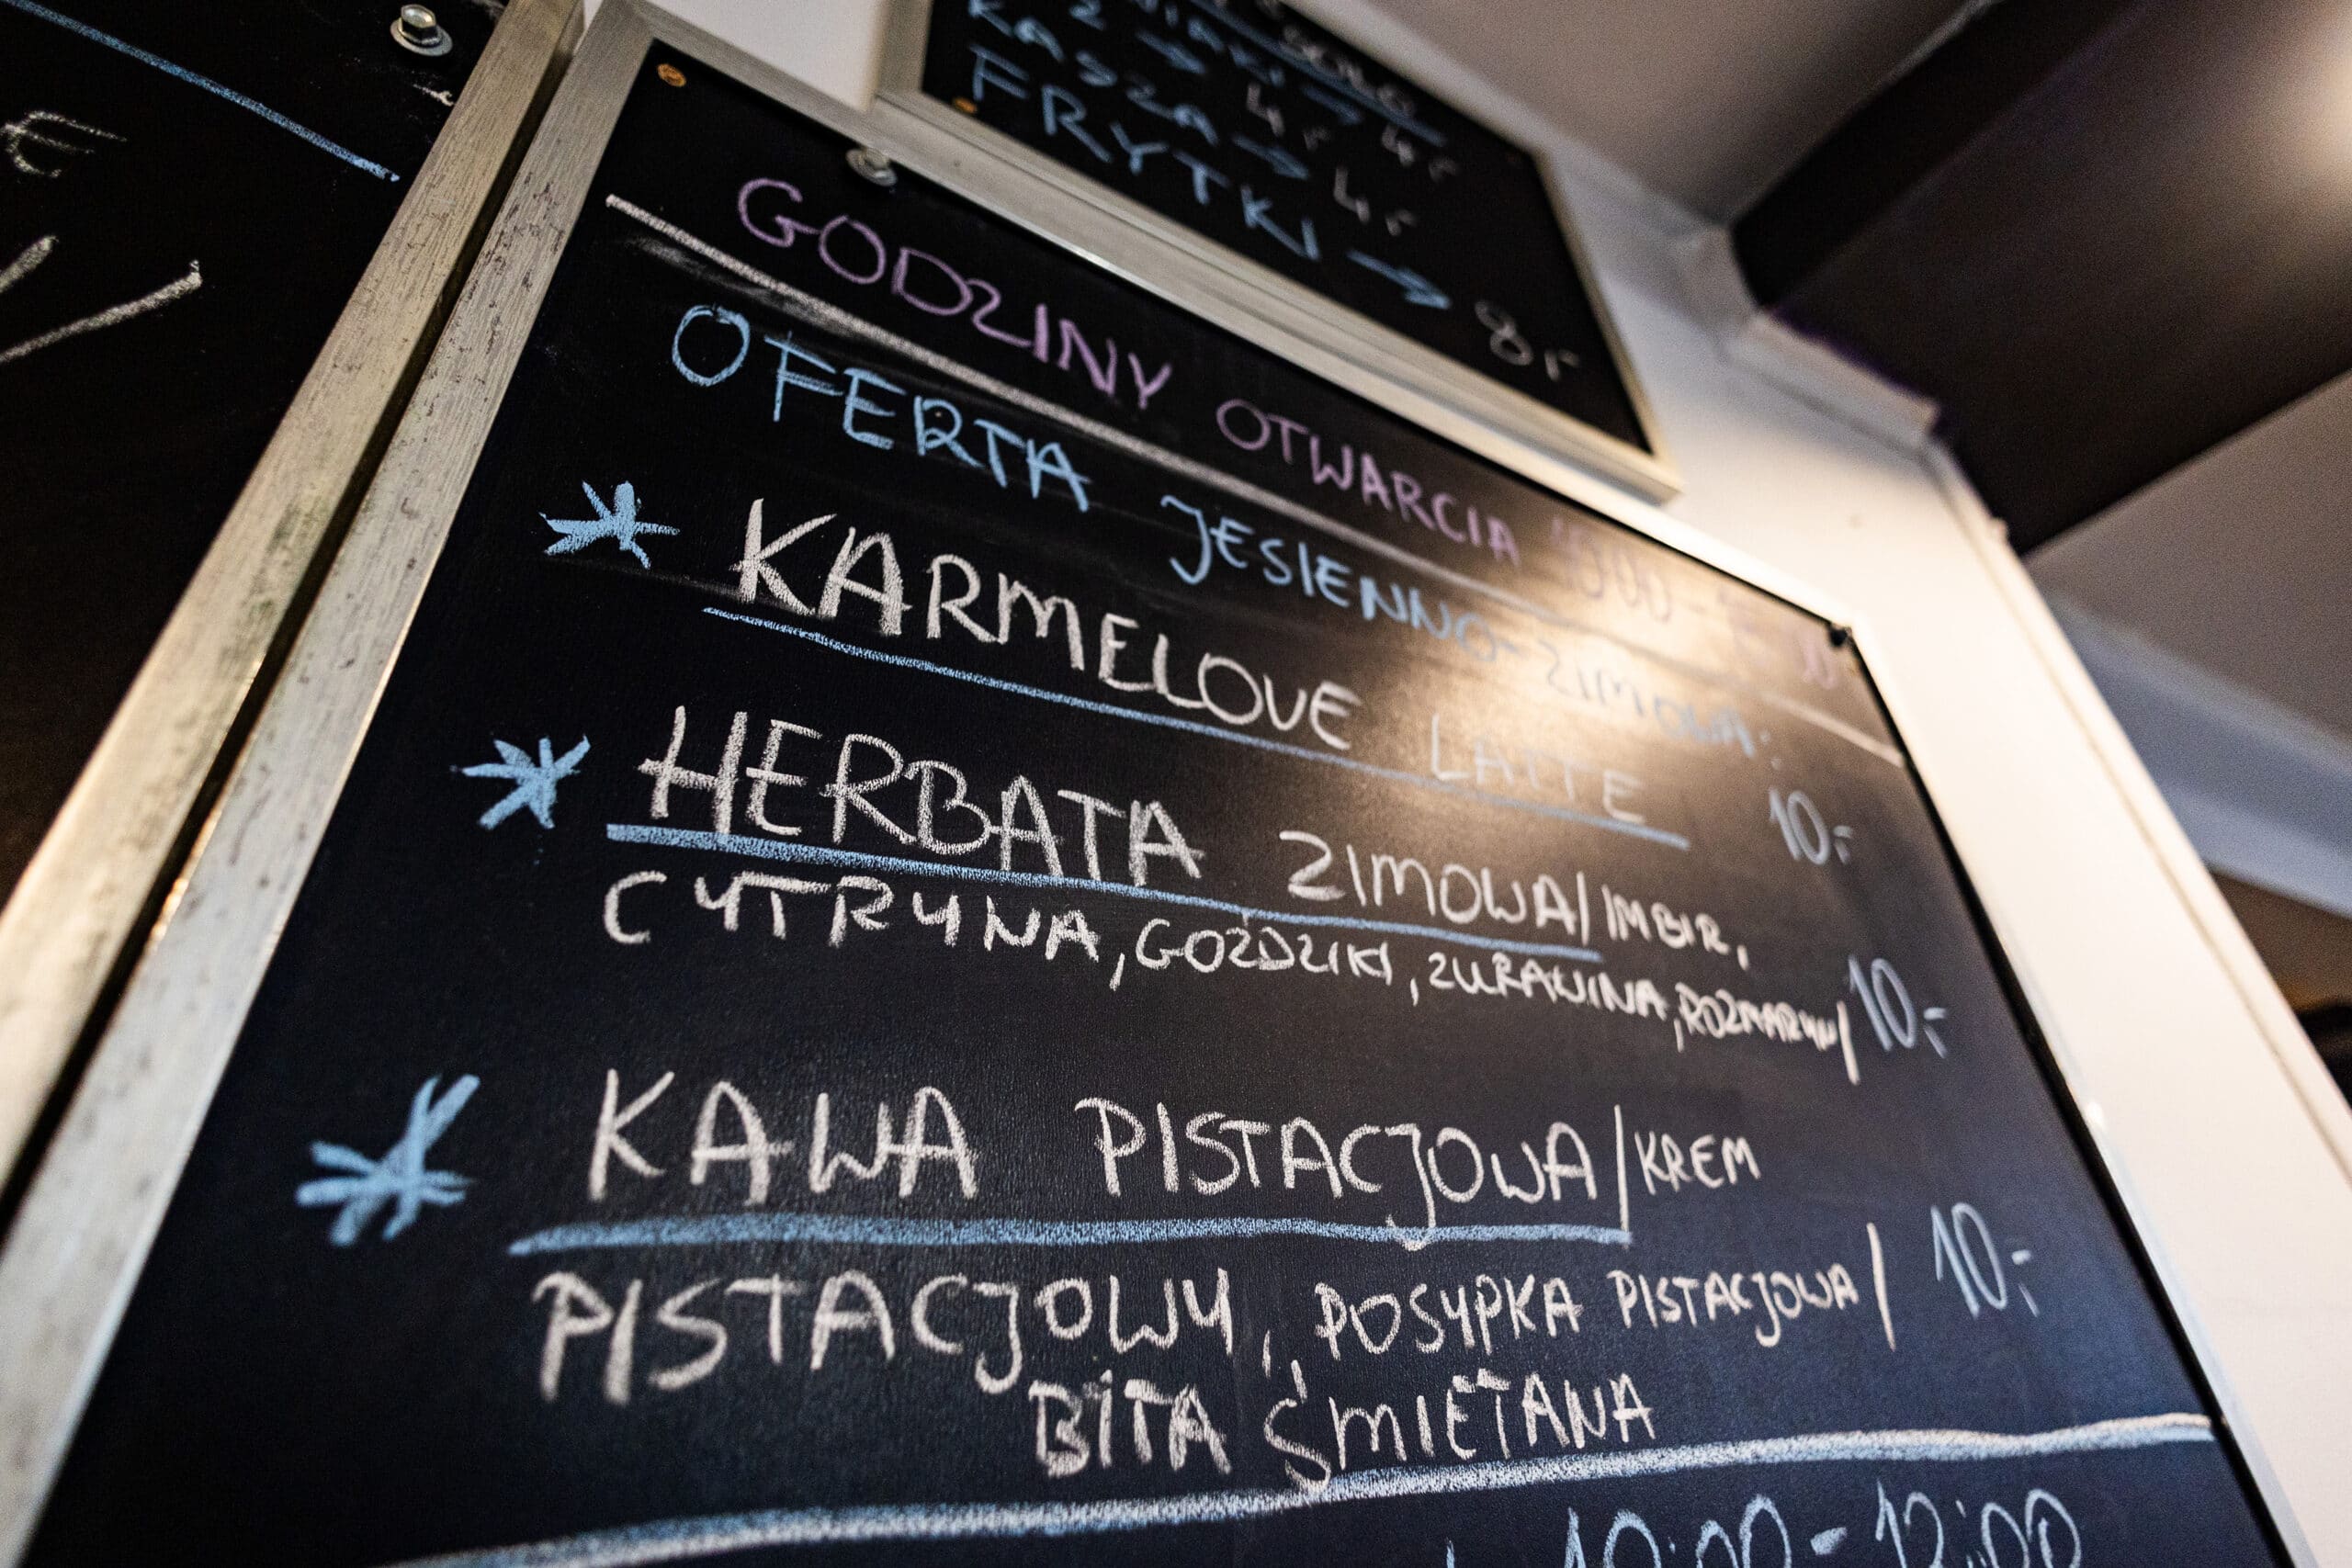 KASZA → 4,-
FRYTKI → 8,-
GODZINY OTWARCIA
OFERTA JESIENNO-ZIMOWA:
* KARMELOVE LATTE 10,-
* HERBATA ZIMOWA/IMBIR,
CYTRYNA, GOŹDZIKI, ZURAWINA, ROZMARYN/ 10,-
* KAWA PISTACJOWA/KREM
PISTACJOWY, POSYPKA PISTACJOWA/ 10,-
BITA ŚMIETANA
10:00-12:00